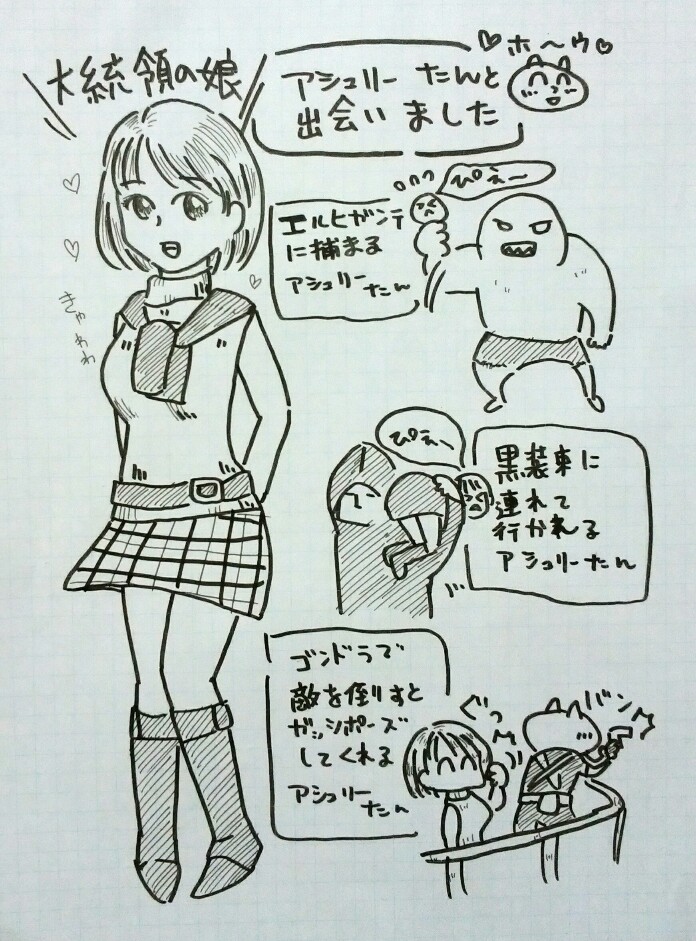 大統領の娘
アシュリーたんと
出会いました
♡ホ〜ウ♡
きゃわわ
エルヒガンテ
に捕まる
アシュリーたん
ぴえー
ぴえー
黒装束に
連れて
行かれる
アシュリーたん
ゴンドラで
敵を倒りすと
ガッシポーズ
してくれる
アシュリーたん
ぐっ
バン